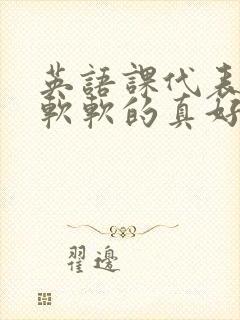 英語課代表
軟軟的真好
翟邊